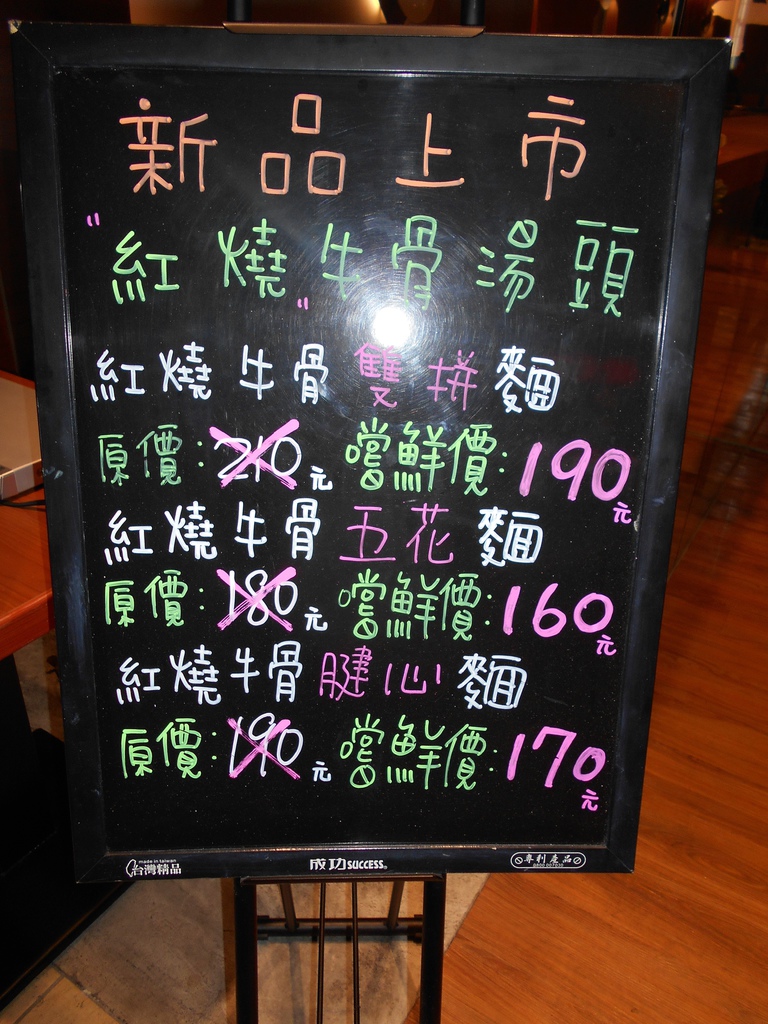 新品上市
"紅燒牛骨湯頭"
紅燒牛骨雙拼麵
原價:210元 嚐鮮價:190元
紅燒牛骨五花麵
原價:180元 嚐鮮價:160元
紅燒牛骨腱心麵
原價:190元 嚐鮮價:170元
made in taiwan
台灣精品
成功SUCCESS®
專利產品